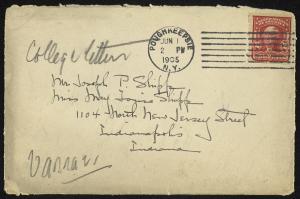 College letters
POUGHKEEPSIE
JUN 1
2 PM
1905
N.Y.
Mr. Joseph P. Shipp
Miss May Louis Shipp
1104 North New Jersey Street
Indianapolis
Indiana
Vassar